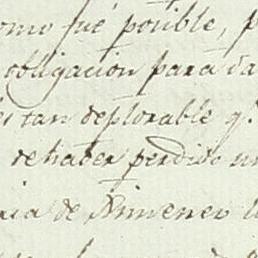 como fué posible, p
obligacion para va
es tan deplorable q.
de haber perdido un
ria de Ximenez